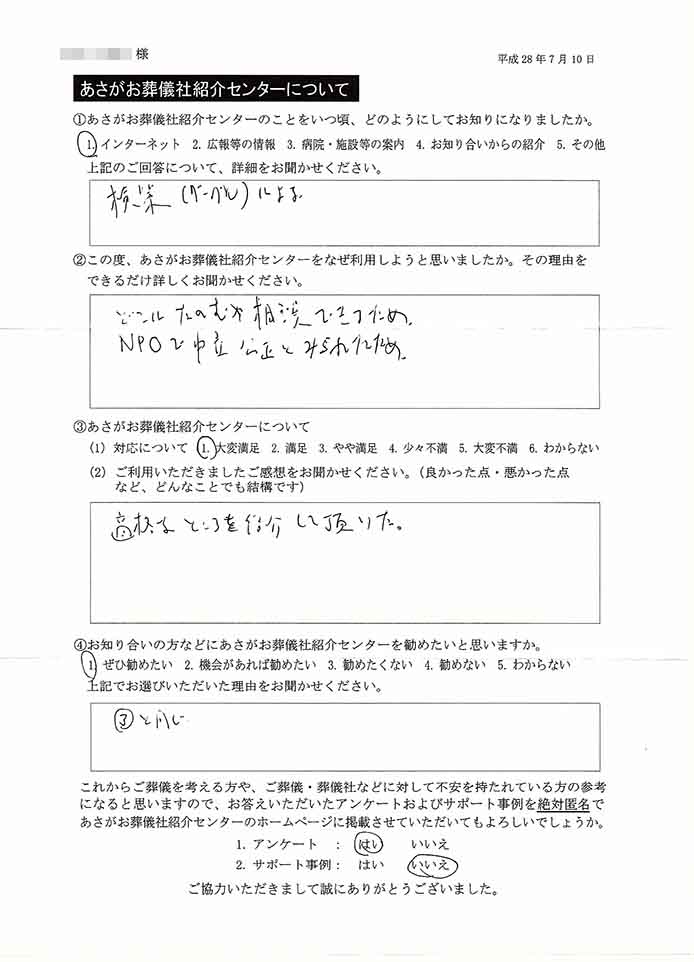 様
平成28年7月10日
あさがお葬儀社紹介センターについて
①あさがお葬儀社紹介センターのことをいつ頃、どのようにしてお知りになりましたか。
1. インターネット 2. 広報等の情報 3. 病院・施設等の案内 4. お知り合いからの紹介 5. その他
上記のご回答について、詳細をお聞かせください。
検索(グーグル)による
②この度、あさがお葬儀社紹介センターをなぜ利用しようと思いましたか。その理由を
できるだけ詳しくお聞かせください。
どこにたのむか相談できるため。
NPOで中立公正とみられたため。
③あさがお葬儀社紹介センターについて
(1) 対応について 1. 大変満足 2. 満足 3. やや満足 4. 少々不満 5. 大変不満 6. わからない
(2) ご利用いただきましたご感想をお聞かせください。(良かった点・悪かった点
など、どんなことでも結構です)
ところを紹介して頂いた。
④お知り合いの方などにあさがお葬儀社紹介センターを勧めたいと思いますか。
1. ぜひ勧めたい 2. 機会があれば勧めたい 3. 勧めたくない 4. 勧めない 5. わからない
上記でお選びいただいた理由をお聞かせください。
③と同じ
これからご葬儀を考える方や、ご葬儀・葬儀社などに対して不安を持たれている方の参考
になると思いますので、お答えいただいたアンケートおよびサポート事例を絶対匿名で
あさがお葬儀社紹介センターのホームページに掲載させていただいてもよろしいでしょうか。
1. アンケート : はい いいえ
2. サポート事例: はい いいえ
ご協力いただきまして誠にありがとうございました。